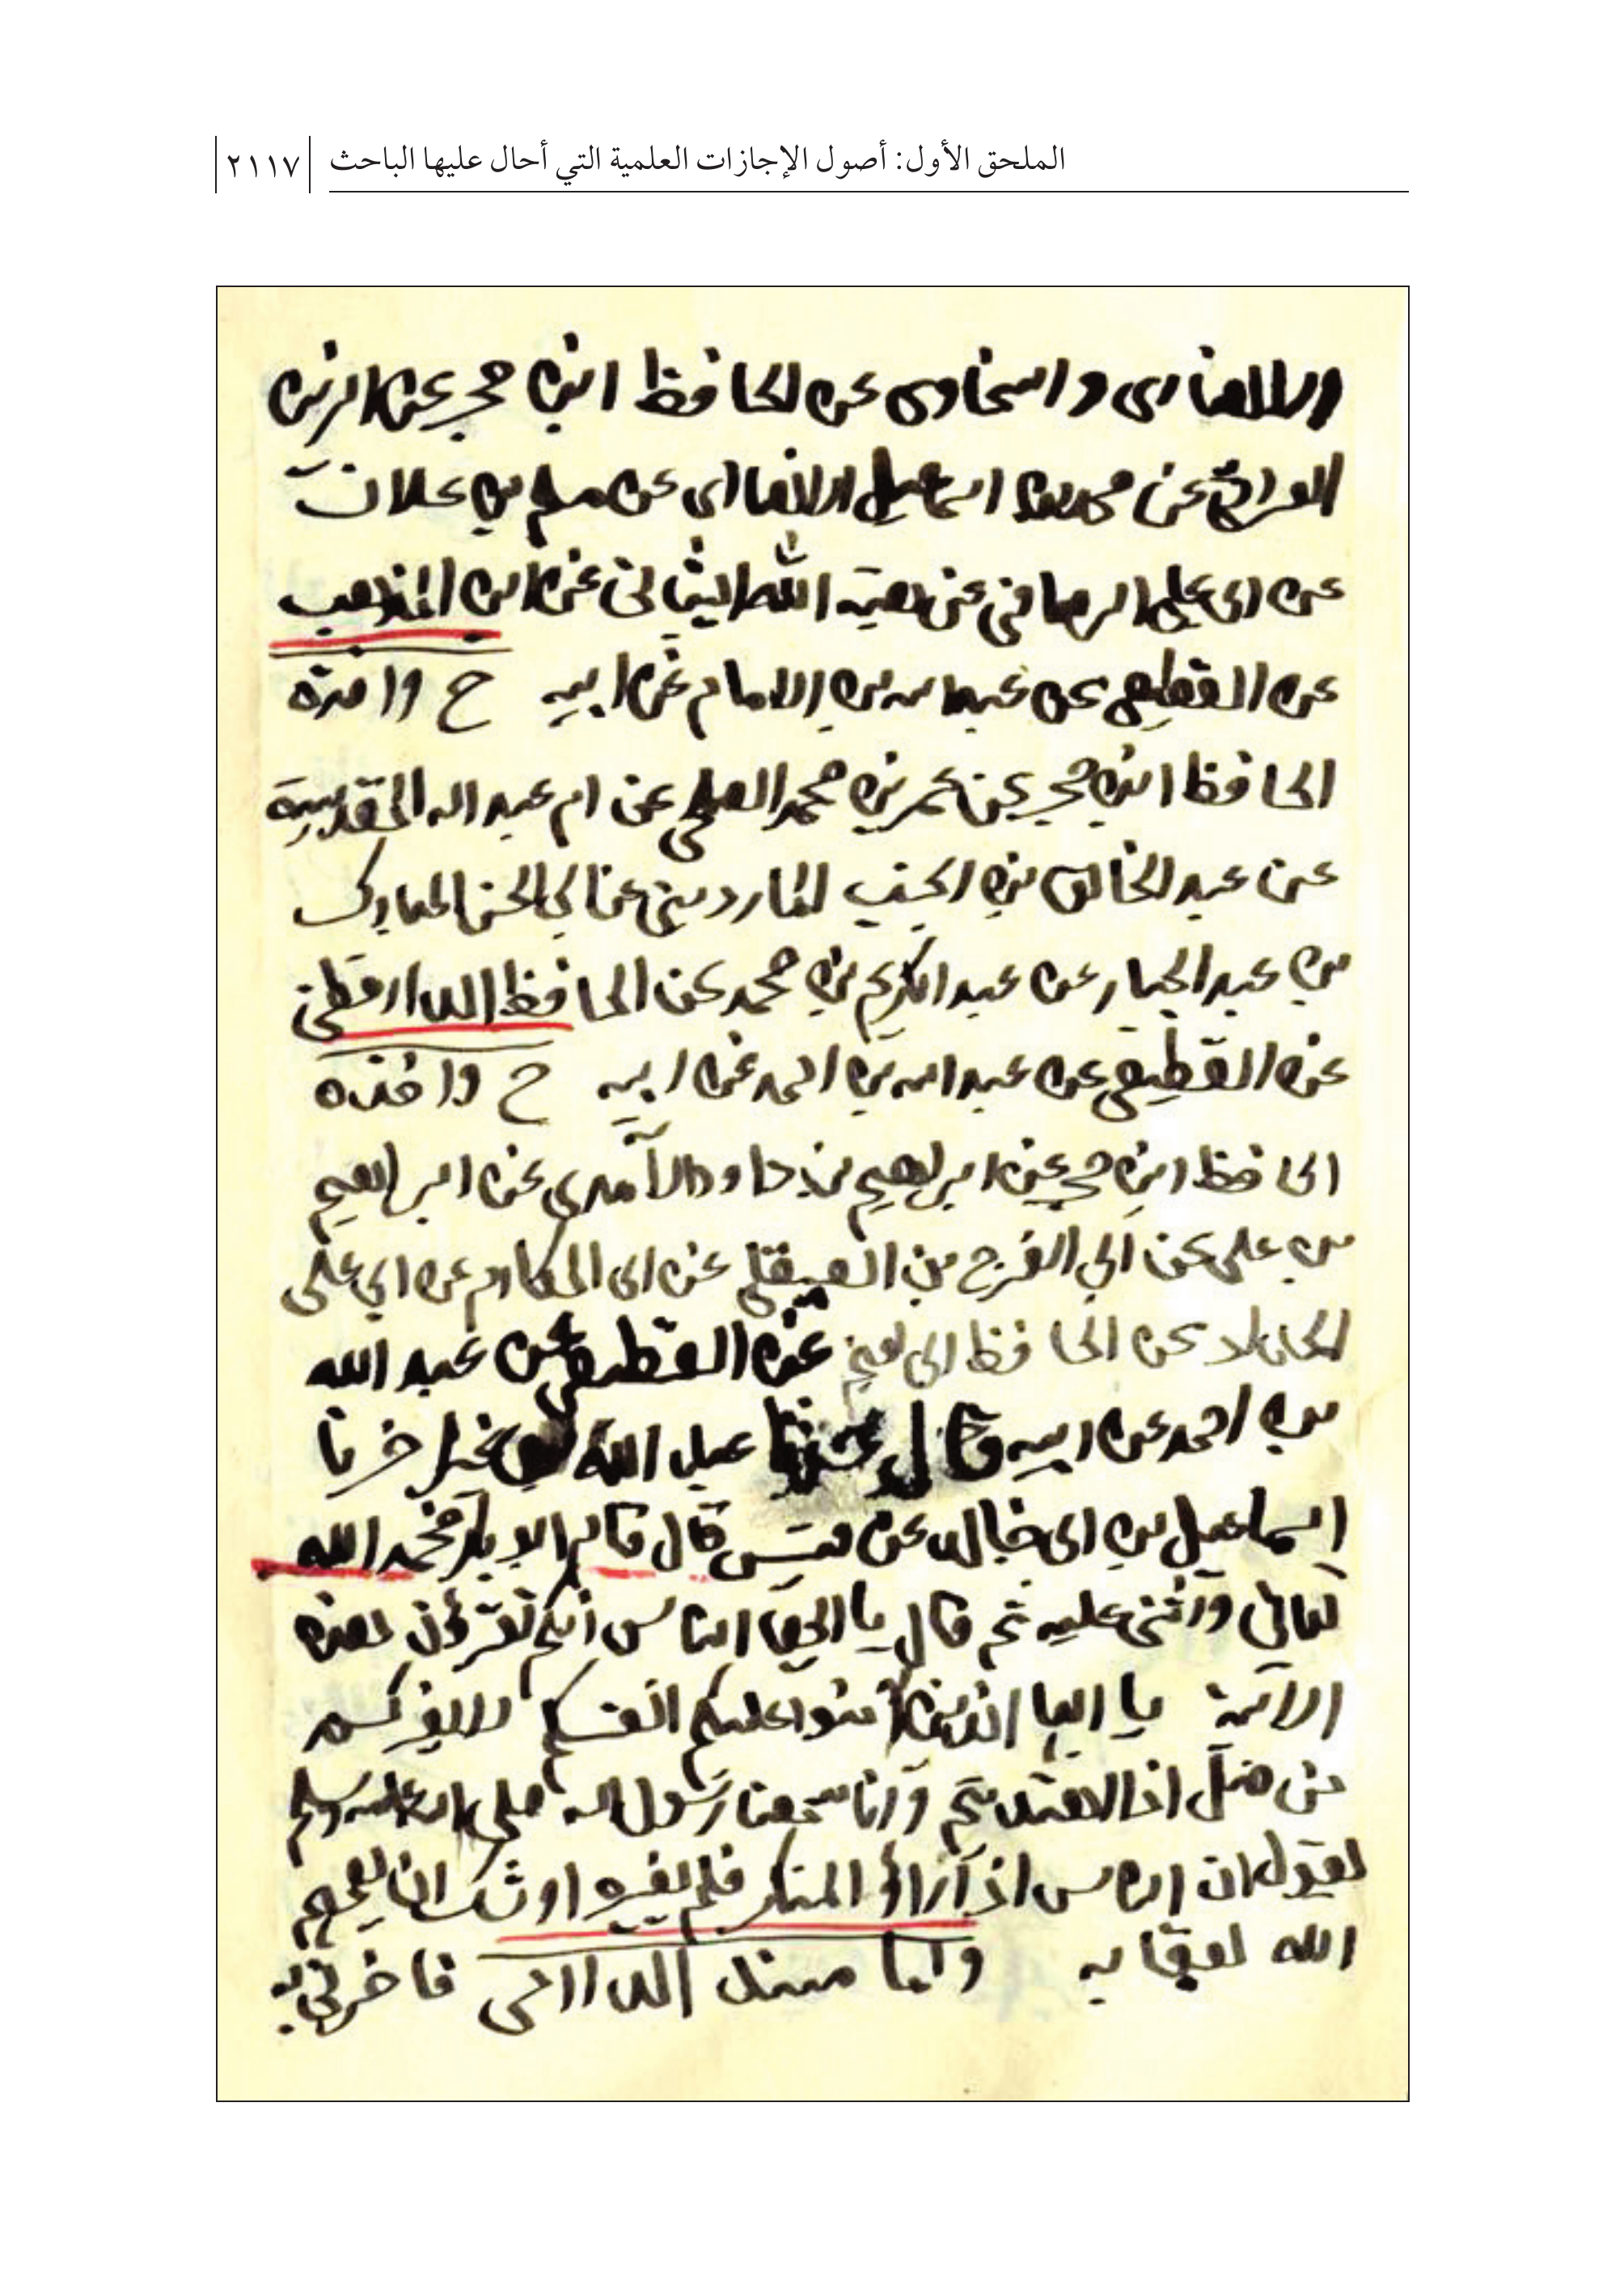 الملحق الأول: أصول الإجازات العلمية التي أحال عليها الباحث
٢١١٧
والانصاری والسخاوی عن الحافظ ابن حجر عن الزین
العراقی عن محمد بن اسماعیل الانصاری عن مسلم بن علان
عن ابی علی الرصافی عن هبة الله الشیبانی عن ابن المذهب
عن القطیعی عن عبد الله بن الامام عن ابیه ح واخبره
الحافظ ابن حجر عن عمر بن محمد عن ام عبد الله المقدسیة
عن عبد الخالق بن انجب الماردینی عن ابی الحسن المبارک
بن عبد الجبار عن عبد الکریم بن محمد عن الحافظ الدارقطنی
عن القطیعی عن عبد الله بن احمد عن ابیه ح واخبره
الحافظ ابن حجر عن ابراهیم بن داود الآمدی عن ابراهیم
بن علی عن ابی الفرج بن الصیقلی عن ابی المکارم عن ابی علی
الحداد عن الحافظ ابی نعیم عن القطیعی عن عبد الله
بن احمد عن ابیه قال حدثنا عبد الله بن نمیر اخبرنا
اسماعیل بن ابی خالد عن قیس قال قام ابو بکر فحمد الله
تعالی وأثنی علیه ثم قال یا ایها الناس انکم تقرؤن هذه
الآیة یا ایها الذین آمنوا علیکم انفسکم لا یضرکم
من ضل اذا اهتدیتم وانا سمعنا رسول الله صلی الله علیه وسلم
یقول ان الناس اذا رأوا المنکر فلم یغیروه اوشک ان یعمهم
الله بعقابه واما مسند الدارمی فاخبرنی به